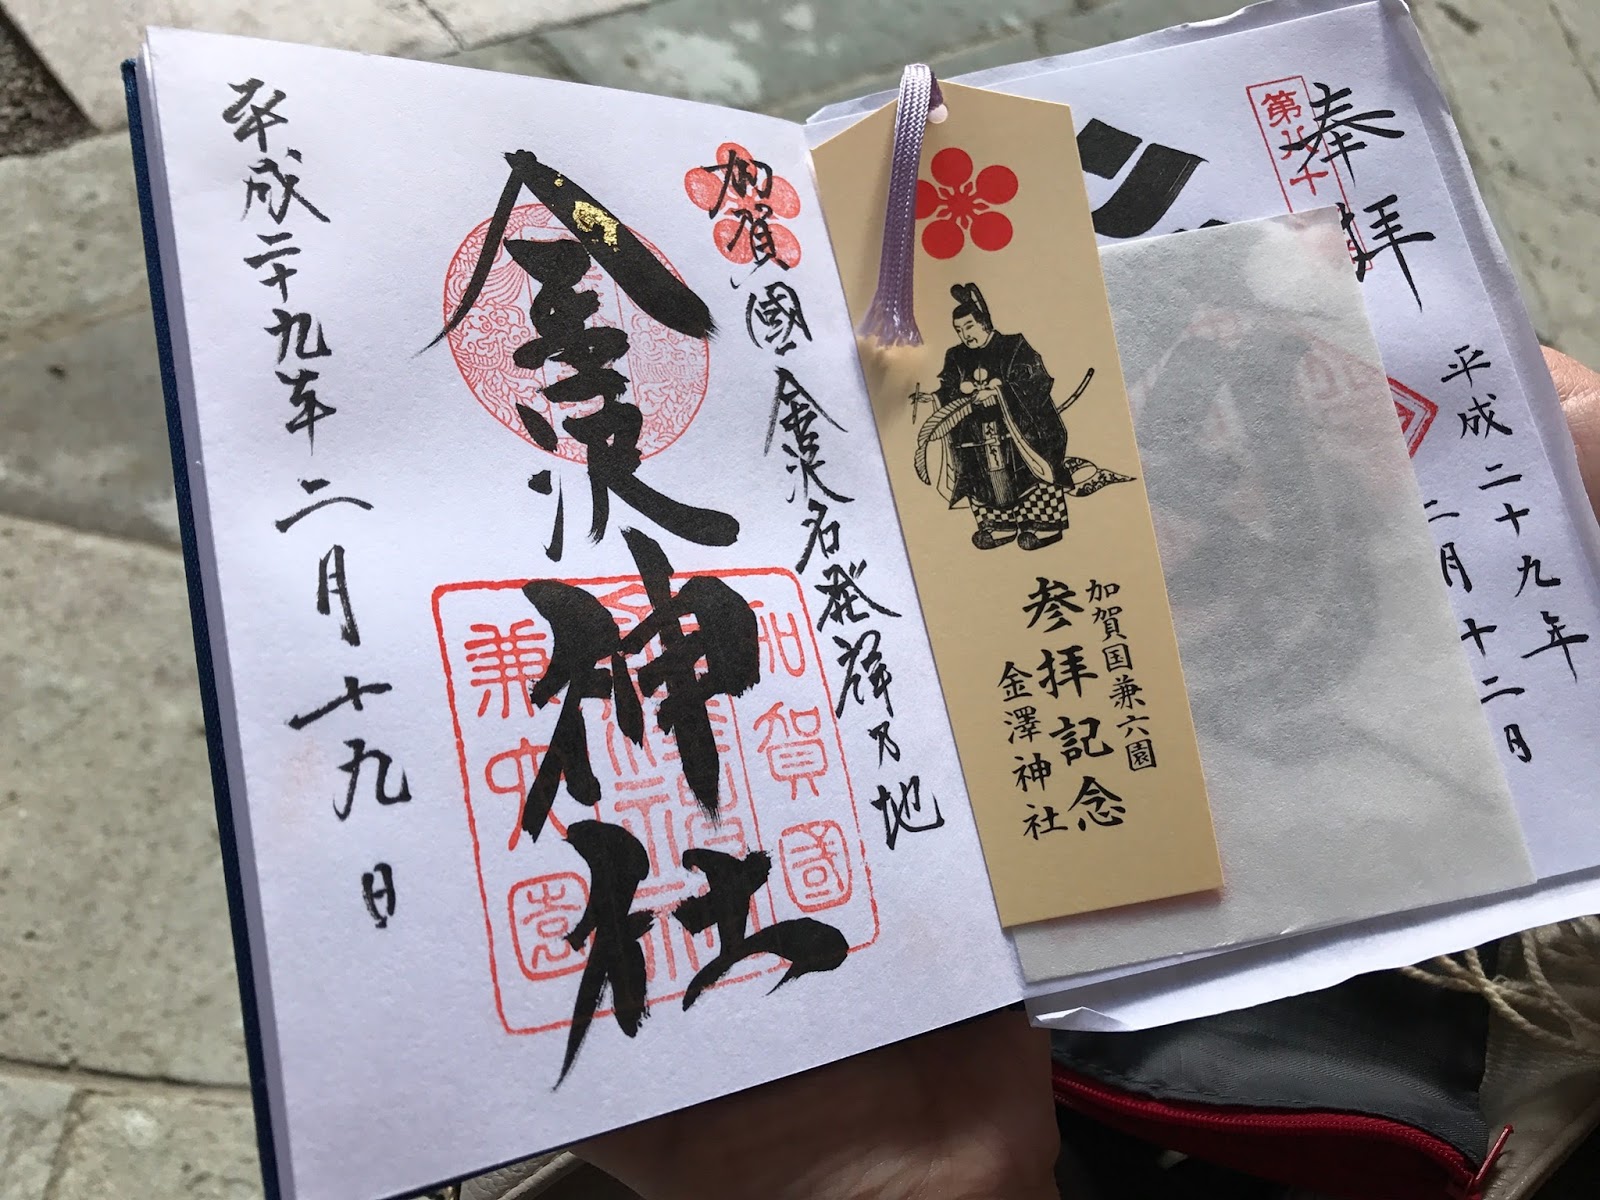 加賀國金沢名発祥乃地
金沢神社
平成二十九年二月十九日
加賀國
兼六園
加賀国兼六園
参拝記念
金澤神社
奉拝
第八十
平成二十九年
二月十二日